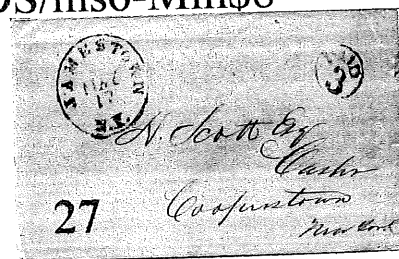 JAMESTOWN
17
N.Y.
PAID
3
H. Scott Esq
Cashr
Cooperstown
New York
27